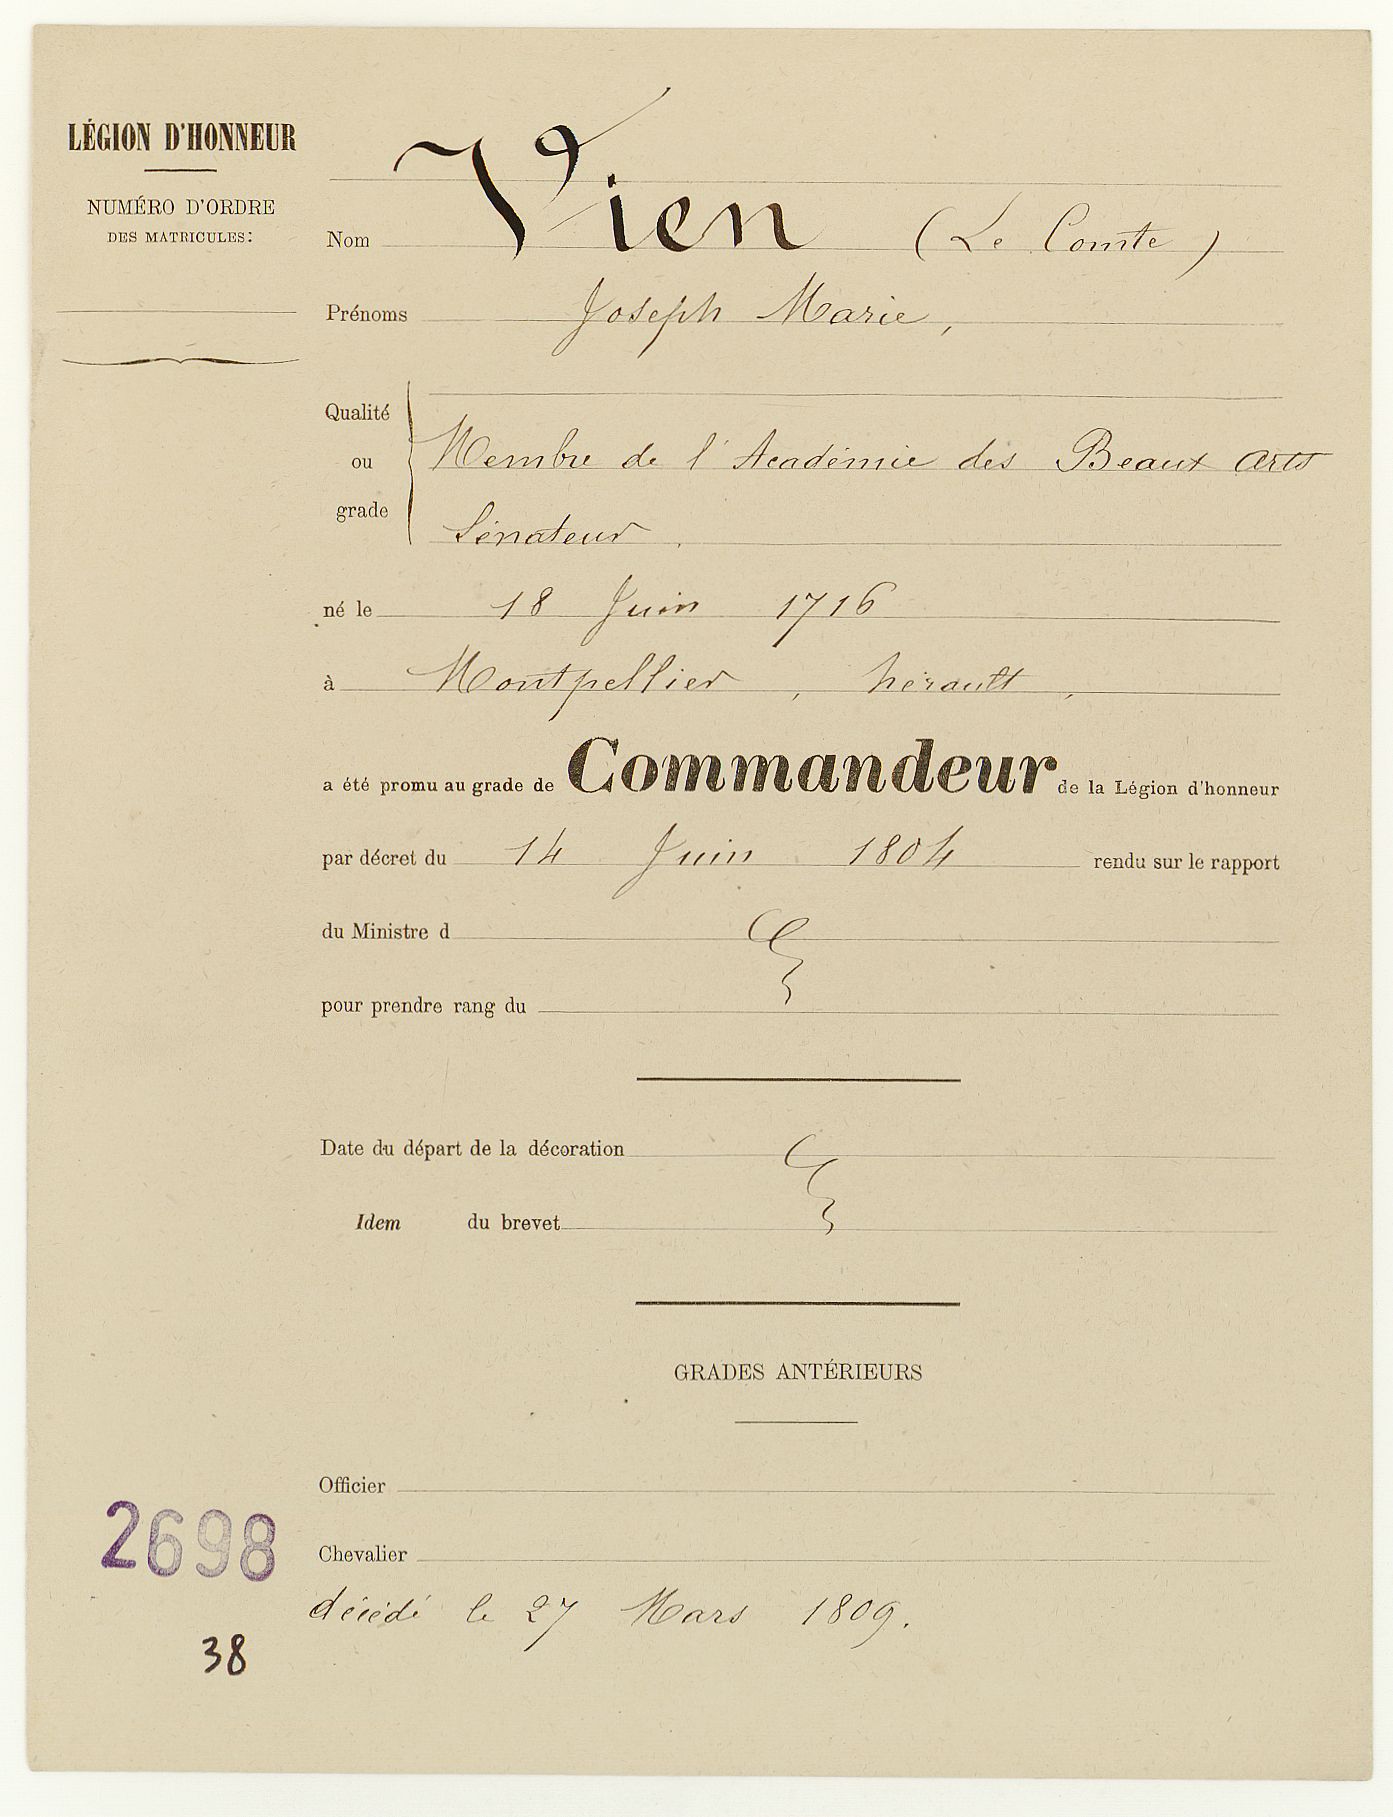 LÉGION D'HONNEUR
NUMÉRO D'ORDRE
DES MATRICULES:
Nom Vien (Le Comte)
Prénoms Joseph Marie,
Qualité ou grade Membre de l'Académie des Beaux Arts
Sénateur.
né le 18 Juin 1716
à Montpellier, hérault,
a été promu au grade de Commandeur de la Légion d'honneur
par décret du 14 Juin 1804 rendu sur le rapport
du Ministre d
pour prendre rang du
Date du départ de la décoration
Idem du brevet
GRADES ANTÉRIEURS
Officier
Chevalier
décédé le 27 Mars 1809.
2698
38